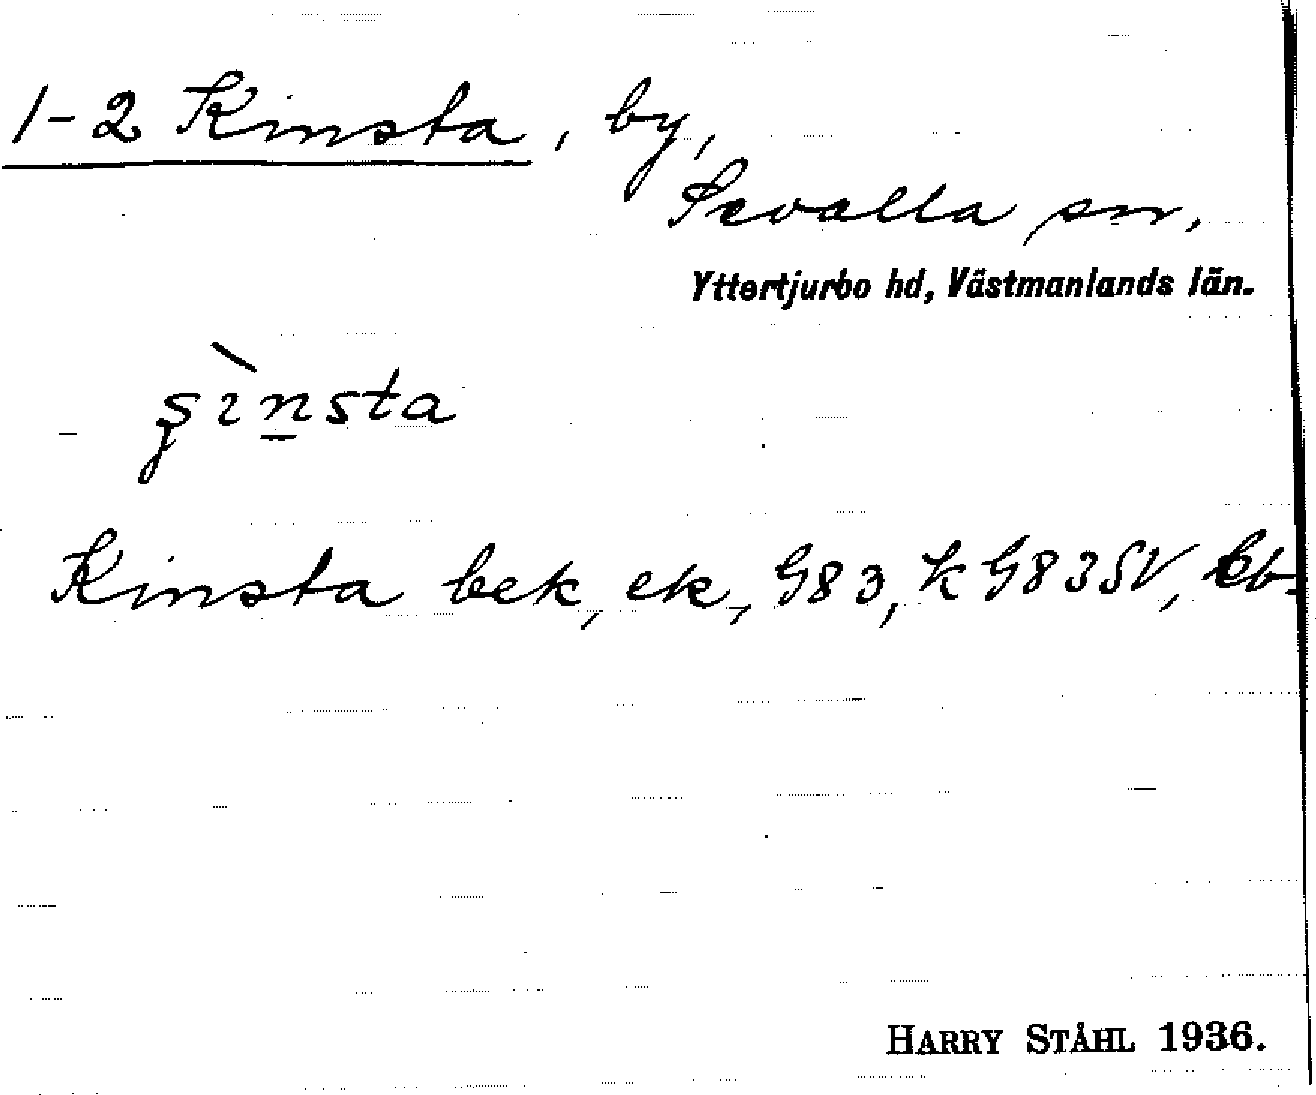 1-2 Kinsta, by,
Sevalla sn,
Yttertjurbo hd, Västmanlands län.
Kinsta bek, ek, G83, k G83SV, Eb.
HARRY STÅHL 1936.